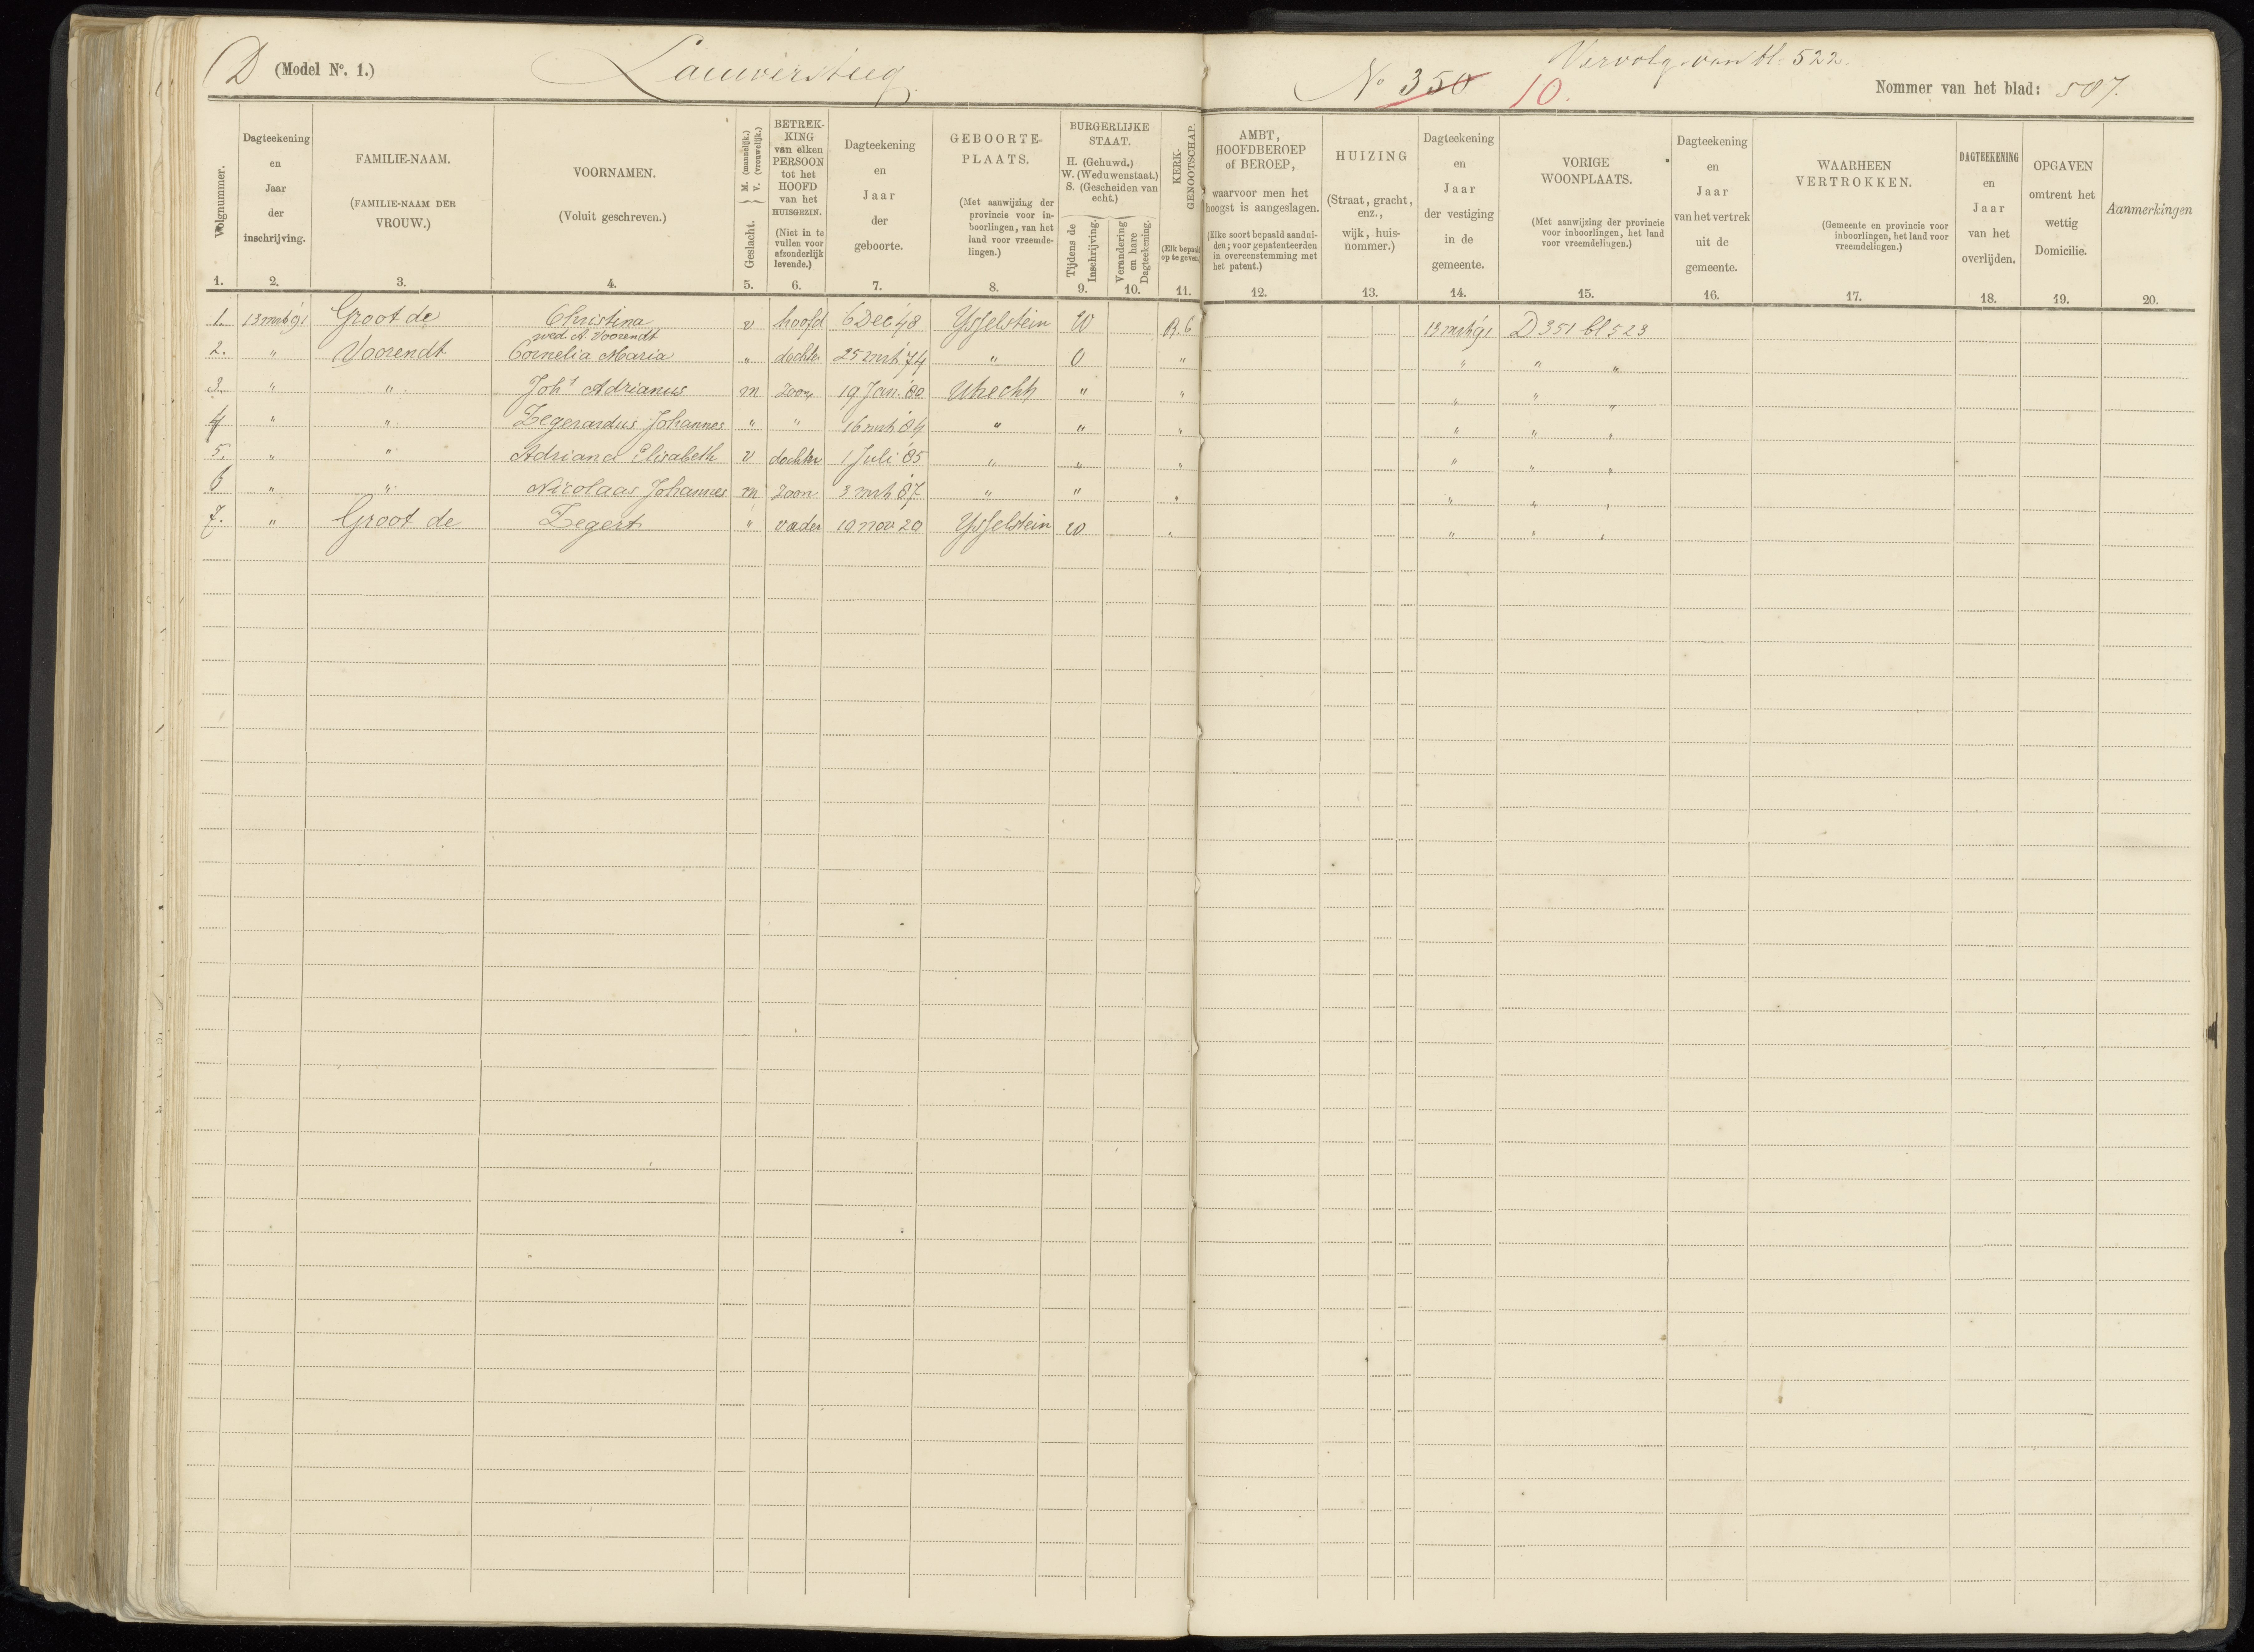 D (Model No. 1.) Lauwersteeg No 350 10. Vervolg van bl. 522. Nommer van het blad: 587.
Volgnummer. 1.
Dagteekening en Jaar der inschrijving. 2.
FAMILIE-NAAM. (FAMILIE-NAAM DER VROUW.) 3.
VOORNAMEN. (Voluit geschreven.) 4.
Geslacht. M. (mannelijk.) V. (vrouwelijk.) 5.
BETREKKING van elken PERSOON tot het HOOFD van het HUISGEZIN. (Niet in te vullen voor afzonderlijk levende.) 6.
Dagteekening en Jaar der geboorte. 7.
GEBOORTE-PLAATS. (Met aanwijzing der provincie voor inboorlingen, van het land voor vreemdelingen.) 8.
BURGERLIJKE STAAT. H. (Gehuwd.) W. (Weduwenstaat.) S. (Gescheiden van echt.)
Tijdens de Inschrijving. 9.
Verandering en hare Dagteekening. 10.
KERK-GENOOTSCHAP. (Elk bepaald op te geven.) 11.
AMBT, HOOFDBEROEP of BEROEP, waarvoor men het hoogst is aangeslagen. (Elke soort bepaald aanduiden; voor gepatenteerden in overeenstemming met het patent.) 12.
HUIZING (Straat, gracht, enz., wijk, huisnommer.) 13.
Dagteekening en Jaar der vestiging in de gemeente. 14.
VORIGE WOONPLAATS. (Met aanwijzing der provincie voor inboorlingen, het land voor vreemdelingen.) 15.
Dagteekening en Jaar van het vertrek uit de gemeente. 16.
WAARHEEN VERTROKKEN. (Gemeente en provincie voor inboorlingen, het land voor vreemdelingen.) 17.
DAGTEEKENING en Jaar van het overlijden. 18.
OPGAVEN omtrent het wettig Domicilie. 19.
Aanmerkingen 20.
1. 13 mrt 91 Groot de Christina v hoofd 6 Dec 48 Ysselstein W R.C 13 mrt 91 D 351 bl 523
wed. A. Voorendt
2. " Voorendt Cornelia Maria " dochter 25 mrt 74 " O " " " "
3. " " Joh s Adrianus m zoon 19 Jan. 80 Utrecht " " " " "
4 " " Zegerardus Johannes " " 16 mrt 84 " " " " " "
5. " " Adriana Elisabeth v dochter 1 Juli 85 " " " " " "
6 " " Nicolaas Johannes m zoon 3 mrt 87 " " " " " "
7. " Groot de Zegert " vader 10 nov 20 Ysselstein W " " " "